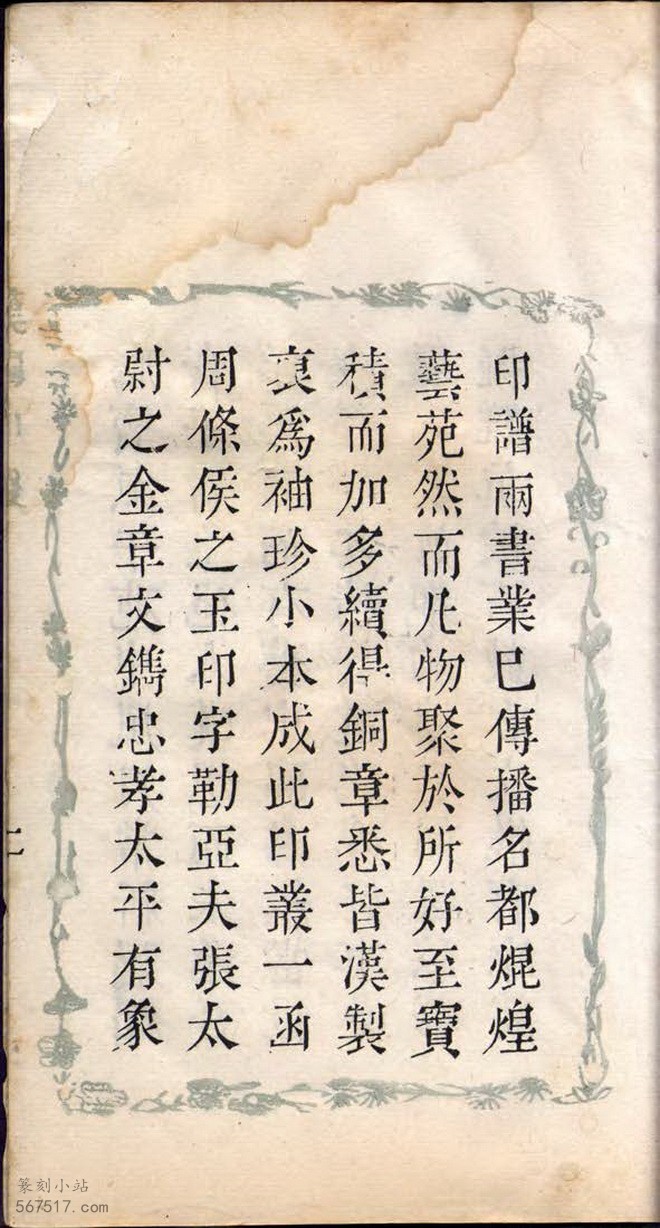 印譜兩書業已傳播名都焜煌
藝苑然而凡物聚於所好至寶
積而加多續得銅章悉皆漢製
裒為袖珍小本成此印叢一函
周條侯之玉印字勒亞夫張太
尉之金章文鐫忠孝太平有象
二
篆刻小站
567517.com